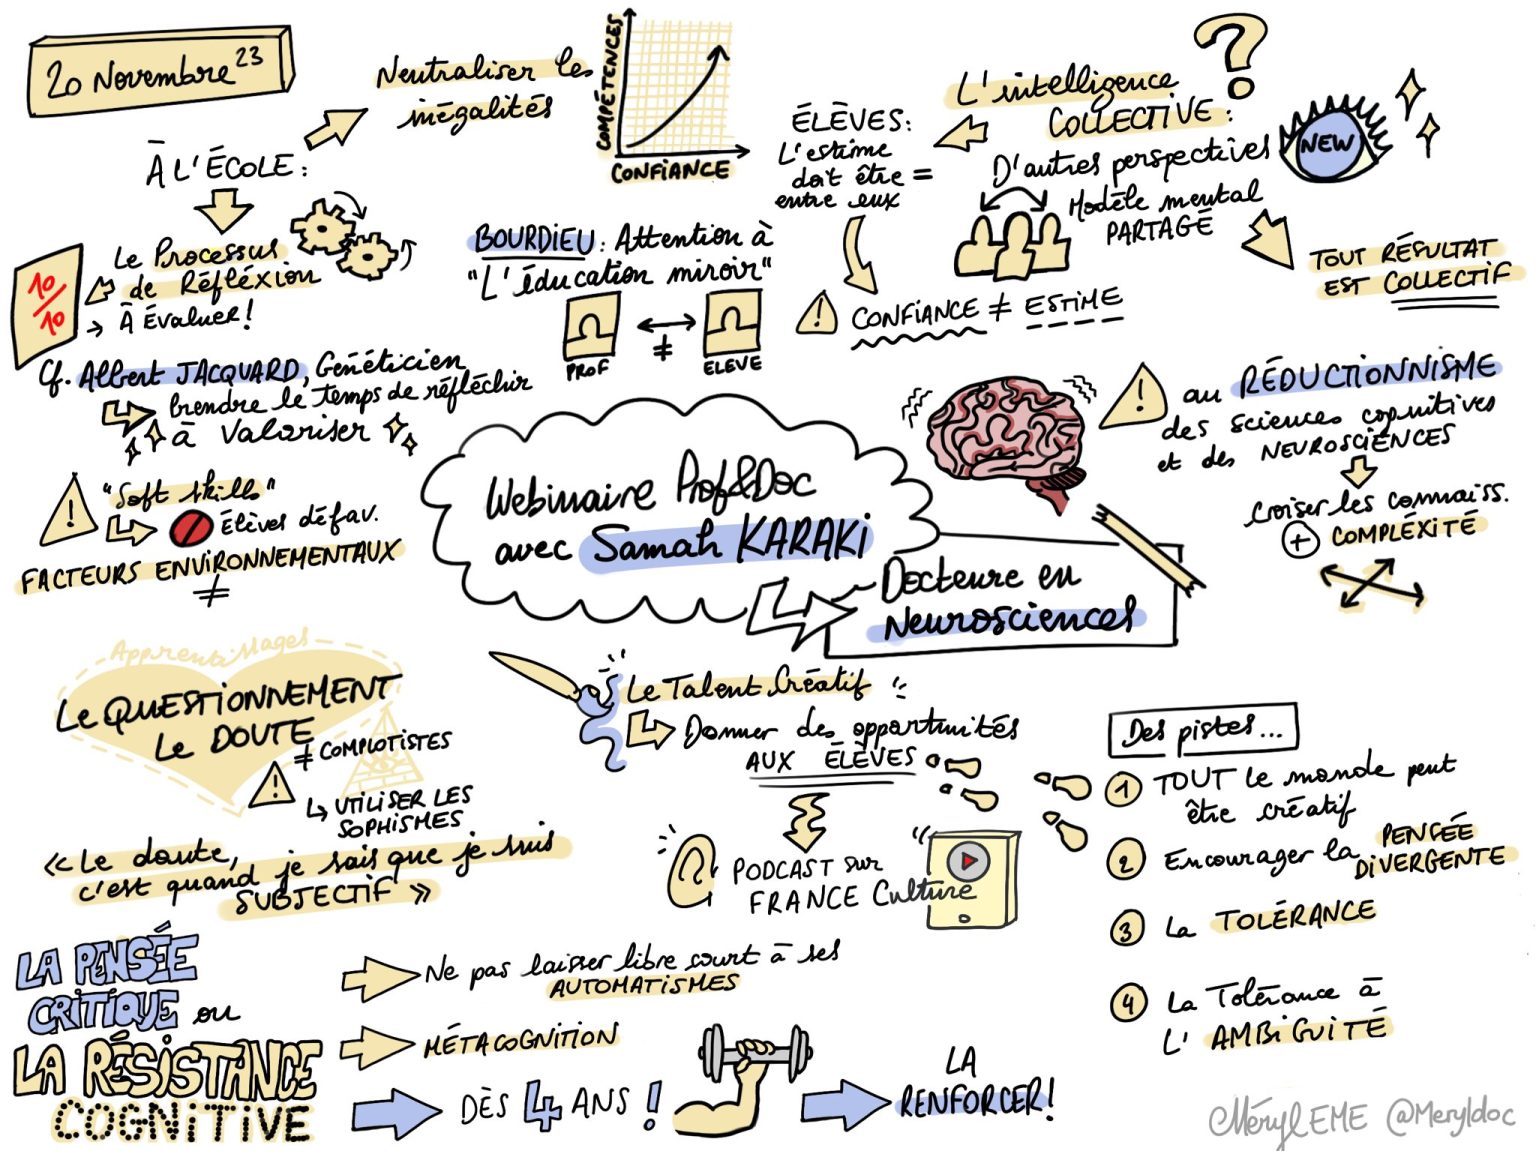 20 Novembre 23
À L'ÉCOLE :
Neutraliser les
inégalités
COMPÉTENCES
CONFIANCE
Le Processus
de Réfléxion
→ À Évaluer !
10/10
Cf. Albert JACQUARD, Généticien
Prendre le temps de réfléchir
à Valoriser
"Soft skills"
Élèves défav.
FACTEURS ENVIRONNEMENTAUX
≠
BOURDIEU : Attention à
"L'éducation miroir"
PROF
≠
ELEVE
L'intelligence
COLLECTIVE :
?
ÉLÈVES :
L'estime
doit être =
entre eux
D'autres perspectives
Modèle mental
PARTAGÉ
NEW
TOUT RÉSULTAT
EST COLLECTIF
! CONFIANCE ≠ ESTIME
! au RÉDUCTIONNISME
des sciences cognitives
et des NEUROSCIENCES
Croiser les connaiss.
+ COMPLÉXITÉ
Webinaire Prof&Doc
avec Samah KARAKI
Docteure en
Neurosciences
Apprentissages
Le QUESTIONNEMENT
Le DOUTE
≠ COMPLOTISTES
!
↳ UTILISER LES
SOPHISMES
« Le doute,
c'est quand je sais que je suis
SUBJECTIF »
Le Talent Créatif
Donner des opportunités
AUX ÉLÈVES
PODCAST sur
FRANCE Culture
Des pistes...
1 TOUT le monde peut
être créatif
2 Encourager la PENSÉE
DIVERGENTE
3 La TOLÉRANCE
4 La Tolérance à
L'AMBIGUITÉ
LA PENSÉE
CRITIQUE ou
LA RÉSISTANCE
COGNITIVE
Ne pas laisser libre court à ses
AUTOMATISMES
MÉTACOGNITION
DÈS 4 ANS !
LA
RENFORCER !
Méryl EME @Meryldoc